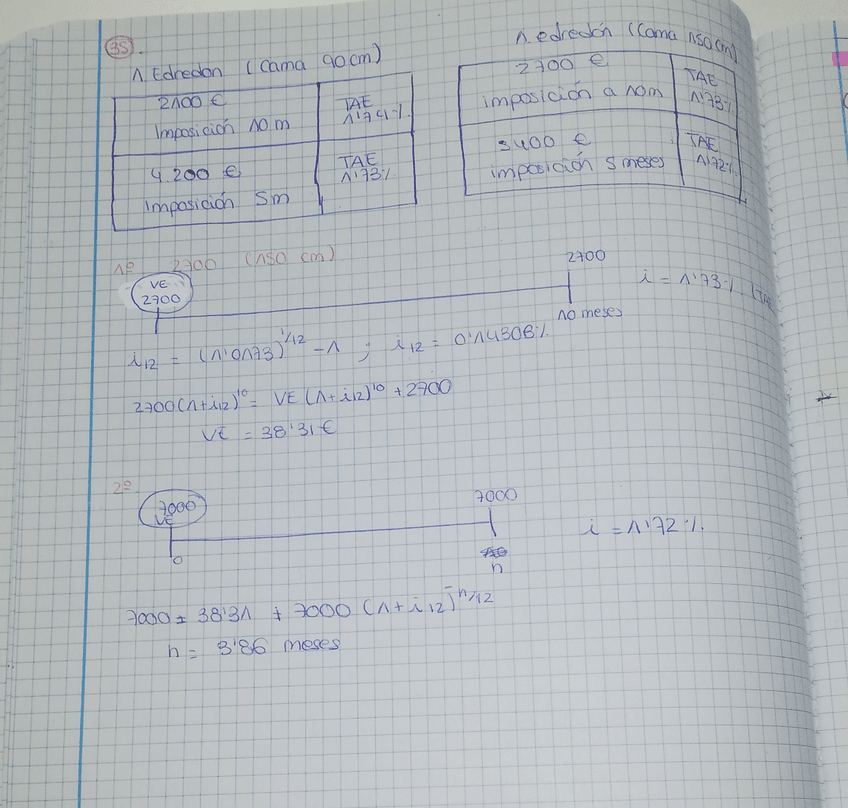 35).
1. Edredon (Cama 90cm)
2100 €
Imposición 10 m
TAE
1'741%
4.200 €
Imposición 5m
TAE
1'73%
1. edredón (Cama 150cm)
2700 €
imposición a 10m
TAE
1'73%
5400 €
imposición 5 meses
TAE
1'72%
1º 2700 (150 cm)
VE
2700
2700
10 meses
i = 1'73% (TAE
i12 = (1'0173)^1/12 - 1 ; i12 = 0'14308%
2700(1+i12)^10 = VE (1+i12)^10 + 2700
VE = 38'31 €
2º
7000
VE
0
7000
n
i = 1'72%
7000 = 38'31 + 7000 (1+i12)^-n/12
n = 3'86 meses